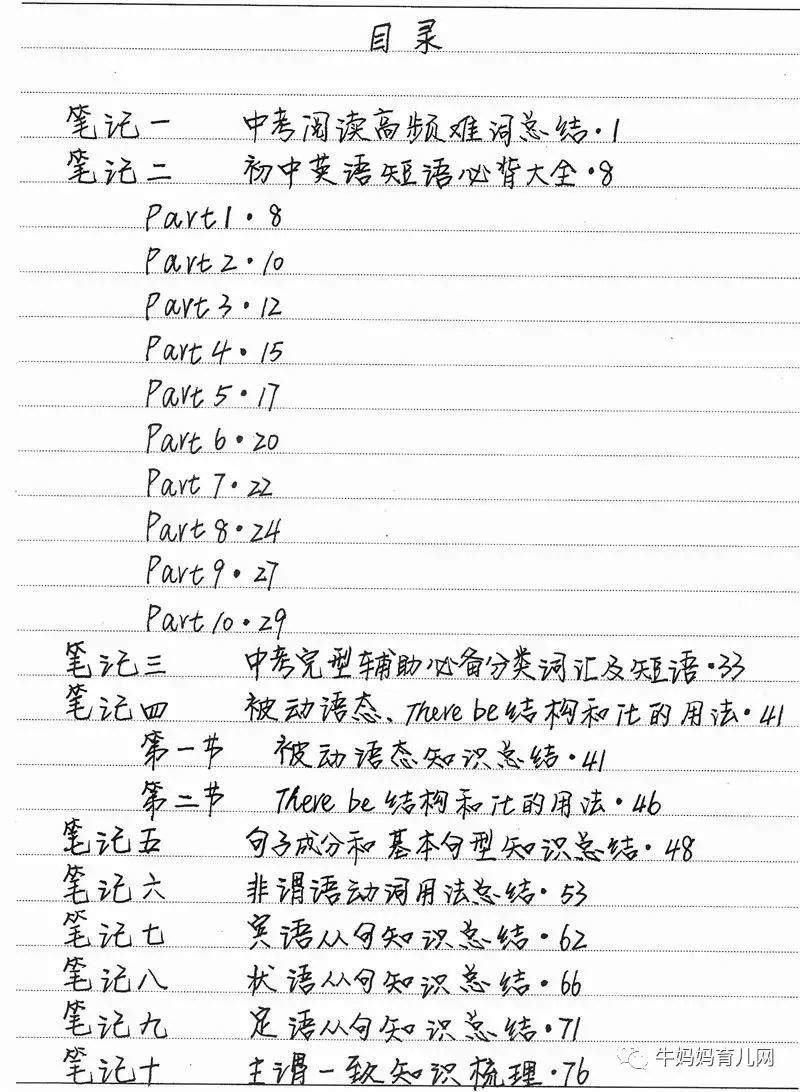 目录
笔记一 中考阅读高频难词总结·1
笔记二 初中英语短语必背大全·8
Part 1·8
Part 2·10
Part 3·12
Part 4·15
Part 5·17
Part 6·20
Part 7·22
Part 8·24
Part 9·27
Part 10·29
笔记三 中考完型辅助必备分类词汇及短语·33
笔记四 被动语态、There be结构和it的用法·41
第一节 被动语态知识总结·41
第二节 There be结构和it的用法·46
笔记五 句子成分和基本句型知识总结·48
笔记六 非谓语动词用法总结·53
笔记七 宾语从句知识总结·62
笔记八 状语从句知识总结·66
笔记九 定语从句知识总结·71
笔记十 主谓一致知识梳理·76
牛妈妈育儿网